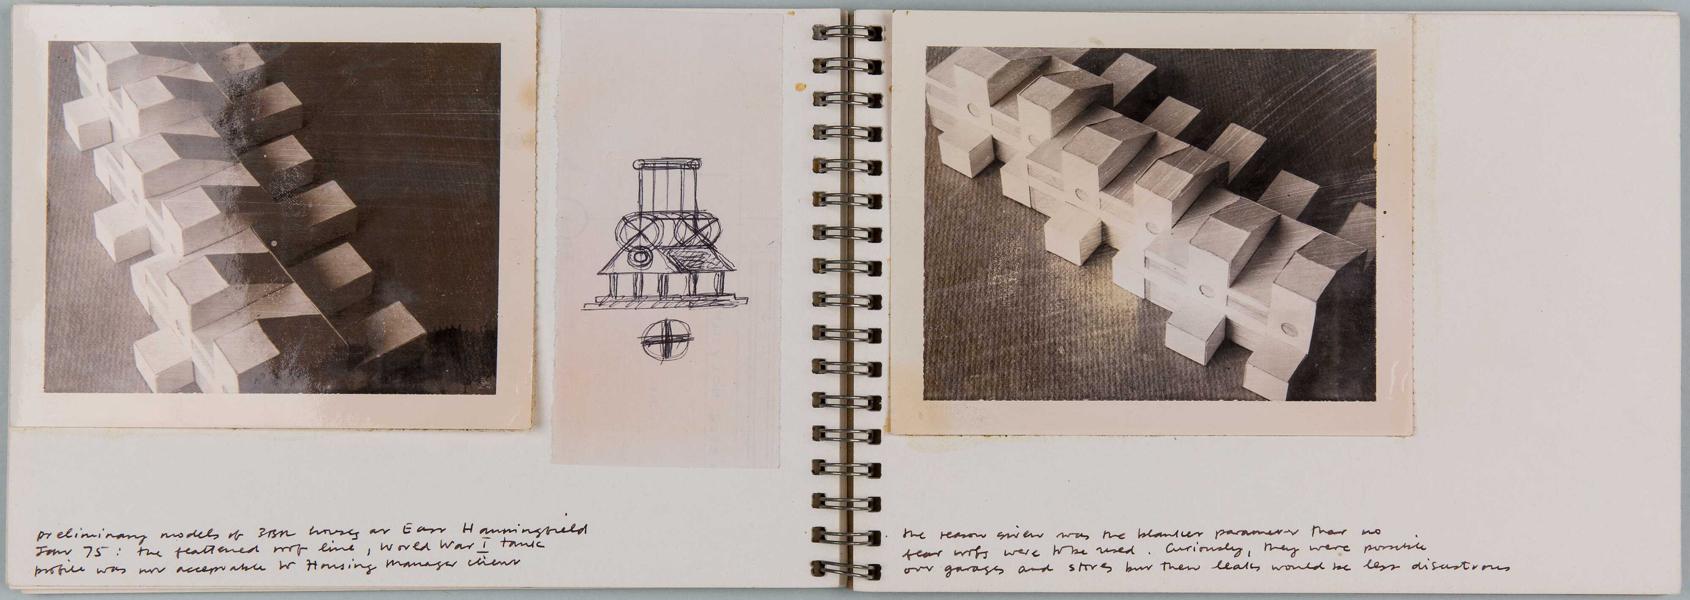 preliminary models of 3BR houses at East Hanningfield
Jan 75: the flattened roof line, World War I tank
profile was not acceptable to Housing Manager client
the reason given was the blanket parameter that no
flat roofs were to be used. Curiously, they were possible
over garages and stores but then leaks would be less disastrous